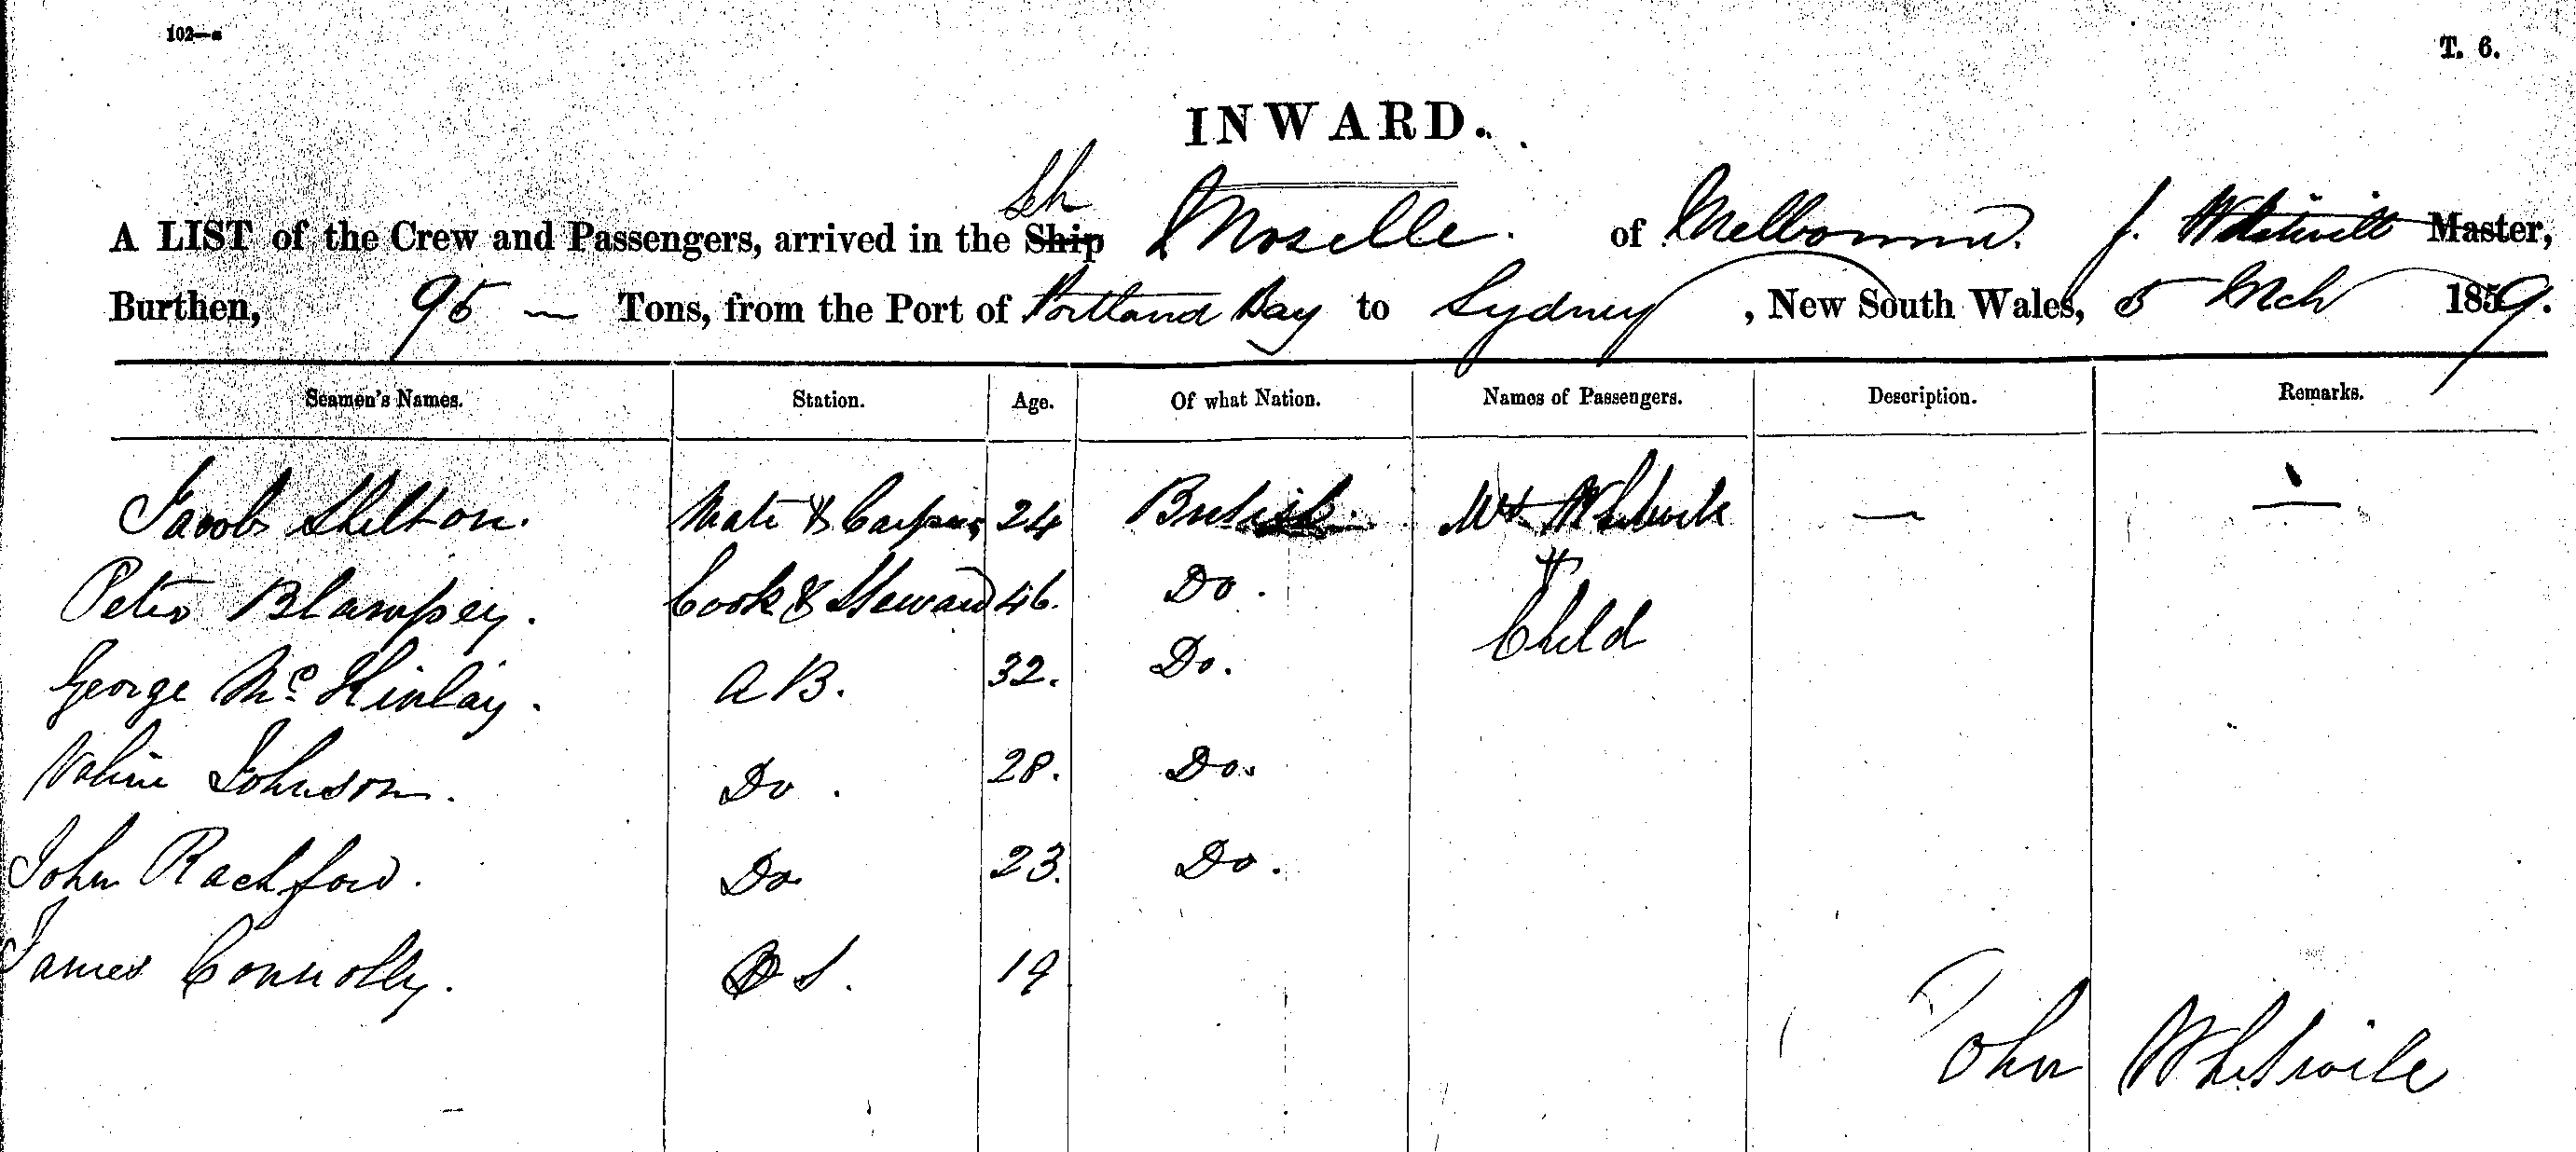 102—a
T. 6.
INWARD.
Sh
A LIST of the Crew and Passengers, arrived in the Ship Moselle. of Melbourne. J. Master,
Burthen, 95 — Tons, from the Port of Portland Bay to Sydney, New South Wales, 5 Mch 1859.
Seamen's Names. Station. Age. Of what Nation. Names of Passengers. Description. Remarks.
Jacob Shelton. Mate & 24 British. — —
Peter Blampey. Cook & Steward 46. Do. &
George McKinlay. A B. 32. Do. Child
Johnson. Do. 28. Do.
John Rachford. Do 23. Do.
James Connolly. O S. 19
John